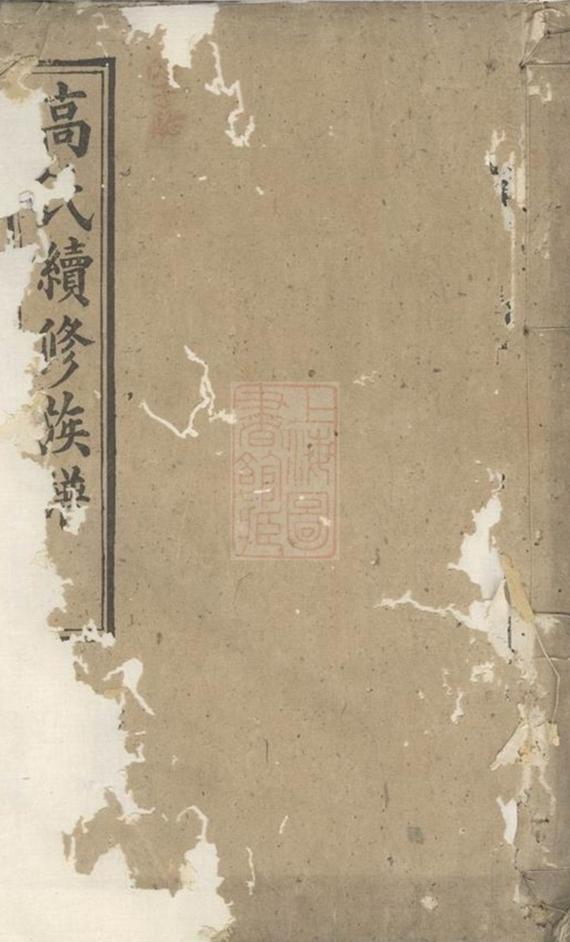 高氏續修族譜
上海圖書館藏